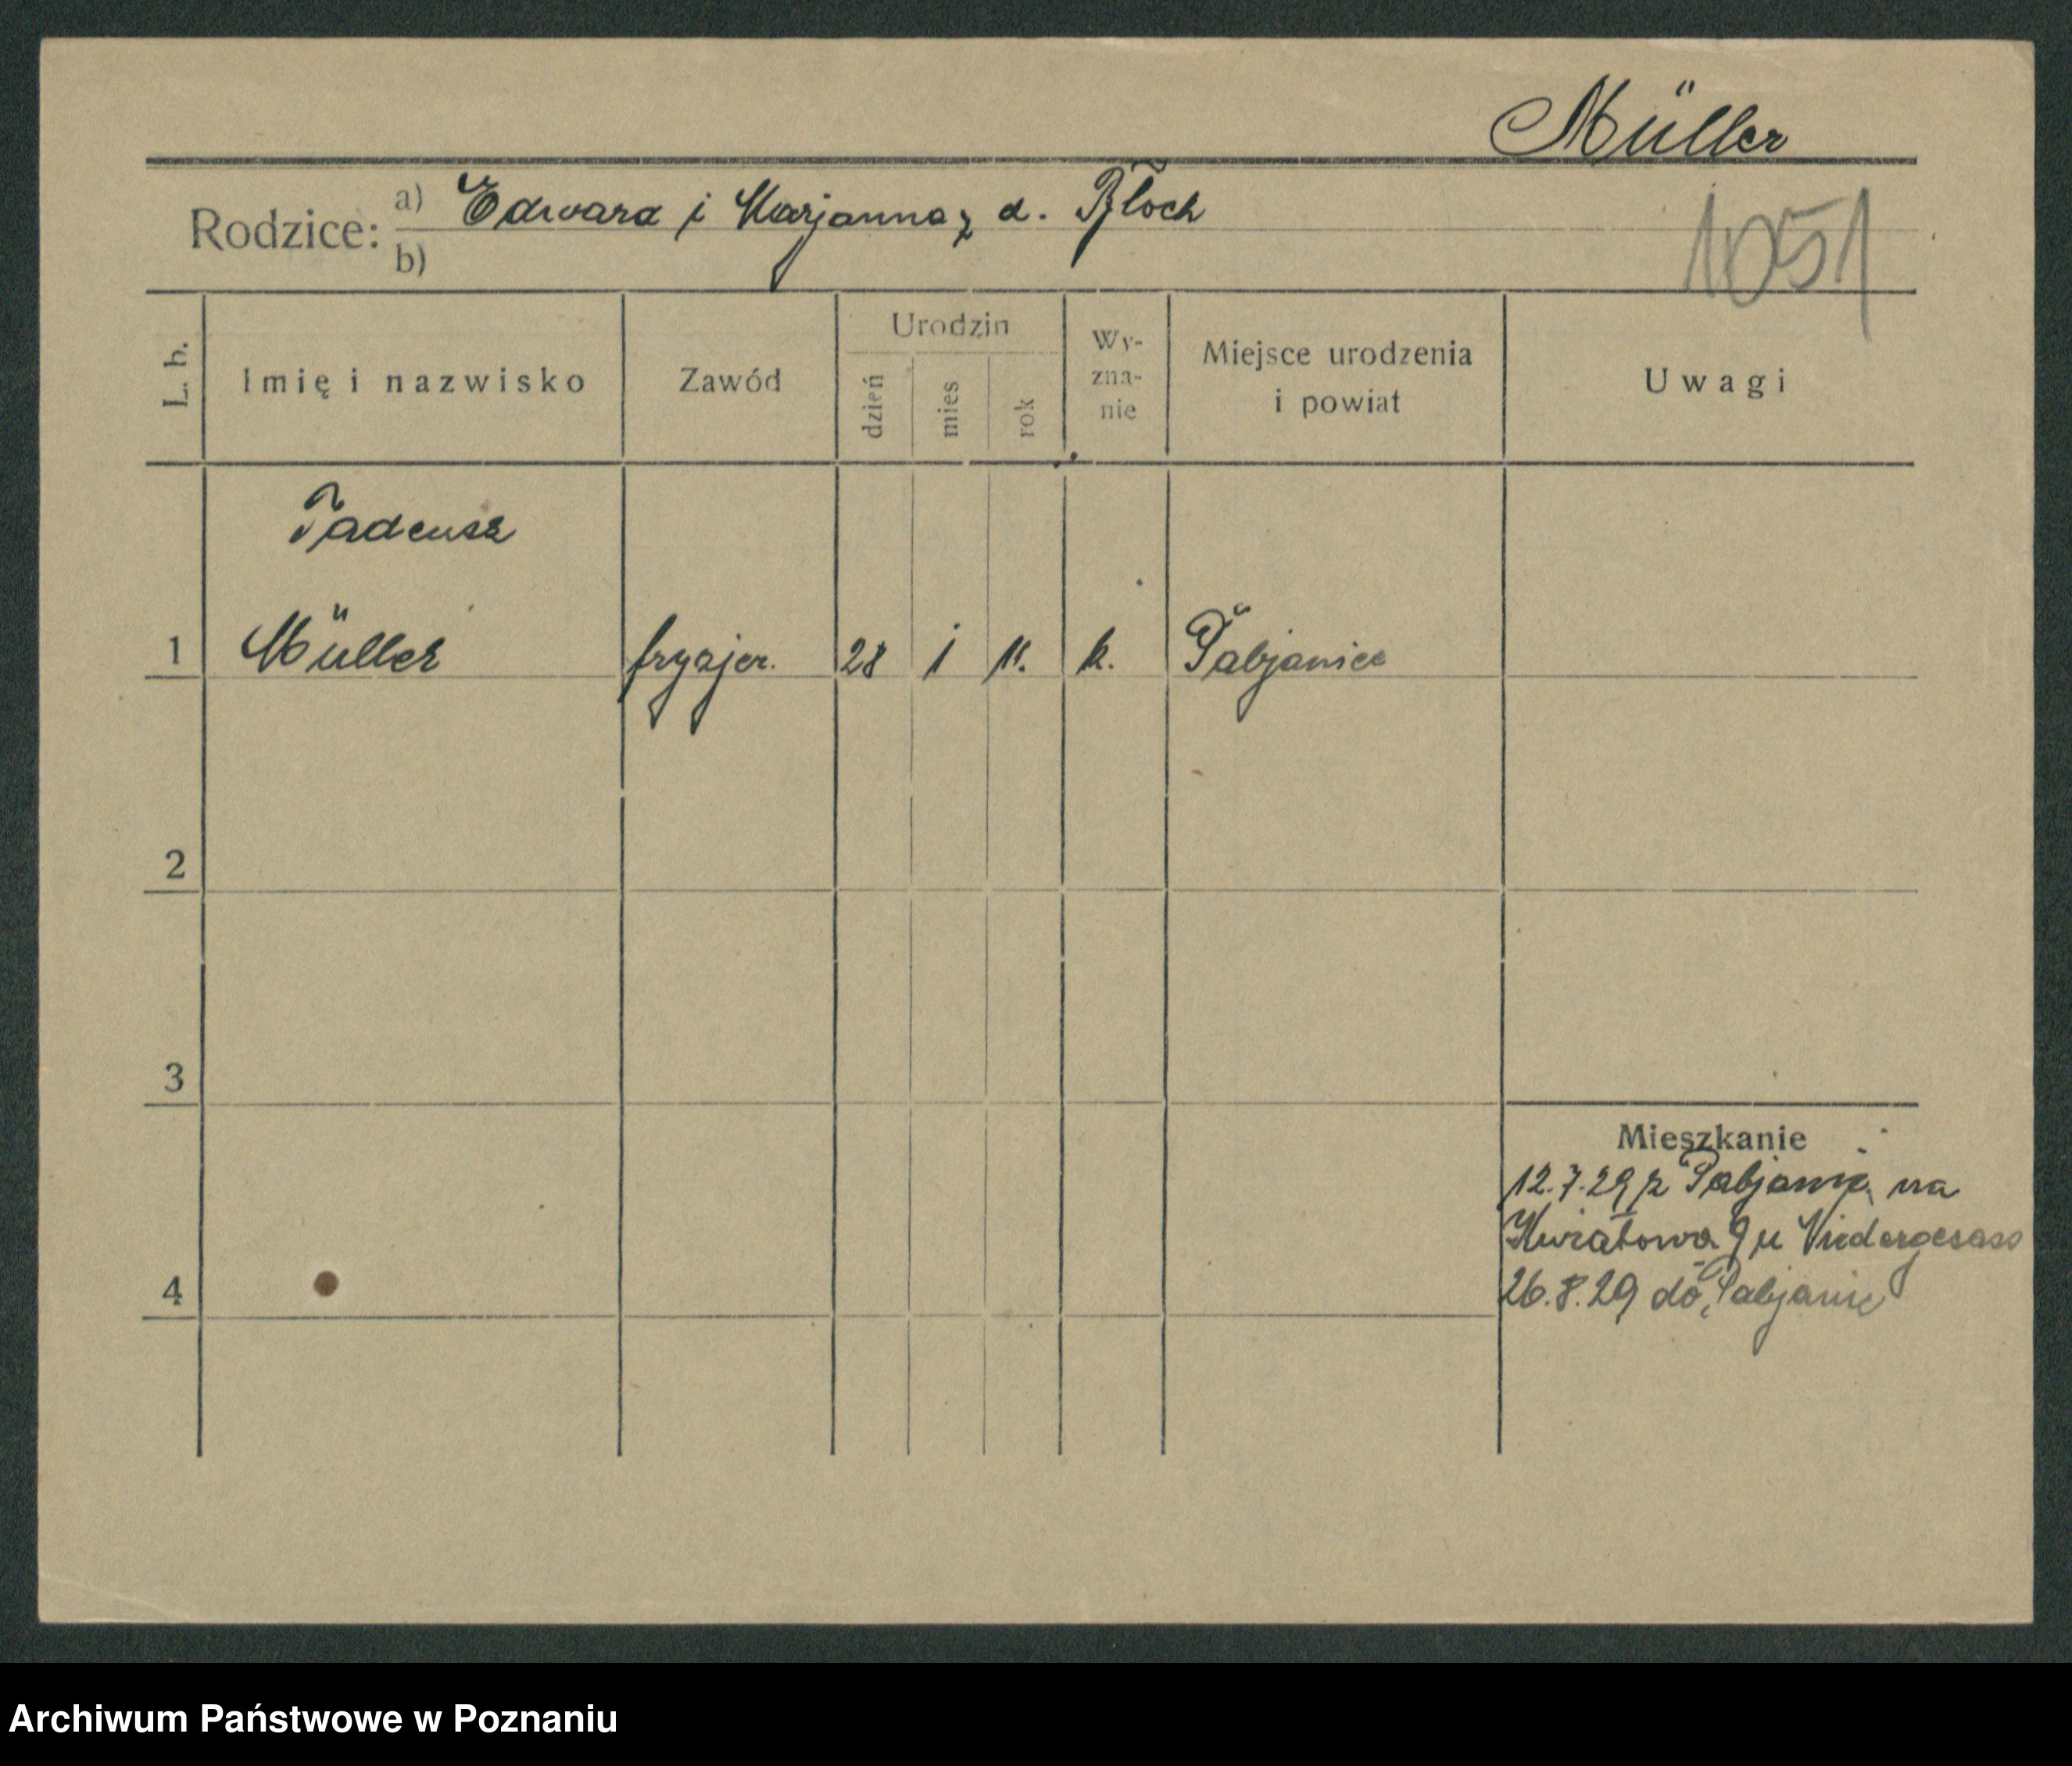 Müller
Rodzice: a) Edward i Marjanna z d. Bloch
b)
1051
L. b.
Imię i nazwisko
Zawód
Urodzin
dzień
mies
rok
Wy-
zna-
nie
Miejsce urodzenia
i powiat
Uwagi
Tadeusz
1 Müller fryzjer. 28 1 11. k. Pabjanice
2
3
4
Mieszkanie
12.7.29 z Pabjanic na
Kwiatowa 9 u
26.8.29 do Pabjanic
Archiwum Państwowe w Poznaniu